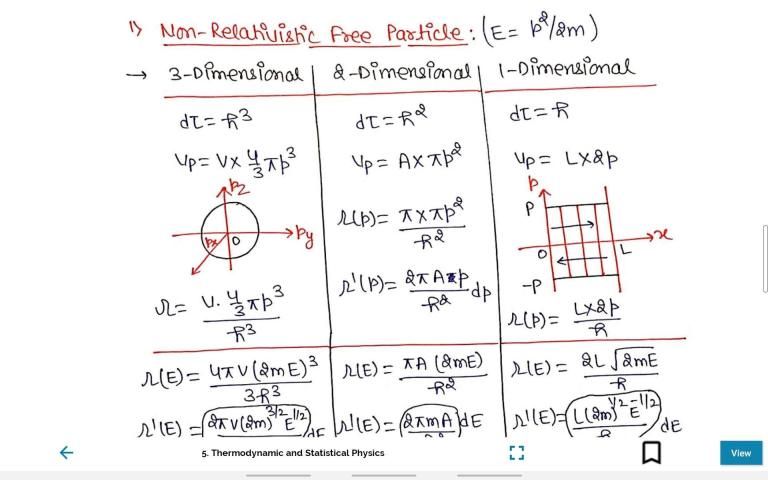 1) Non-Relativistic Free Particle: (E = p²/2m)
→ 3-Dimensional | 2-Dimensional | 1-Dimensional
dτ = h³
dτ = h²
dτ = h
Vp = V× 4/3 πp³
Vp = A×πp²
Vp = L×2p
pz
py
px
O
Ω(p) = π×πp²/h²
p
P
x
O
L
-P
Ω = V. 4/3 πp³/h³
Ω'(p) = 2πAp/h² dp
Ω(p) = L×2p/h
Ω(E) = 4πV(2mE)³/3h³
Ω(E) = πA(2mE)/h²
Ω(E) = 2L√2mE/h
Ω'(E) = 2πV(2m)^3/2 E^1/2 dE
Ω'(E) = (2πmA)dE
Ω'(E) = L(2m)^1/2 E^-1/2/h dE
5. Thermodynamic and Statistical Physics
View